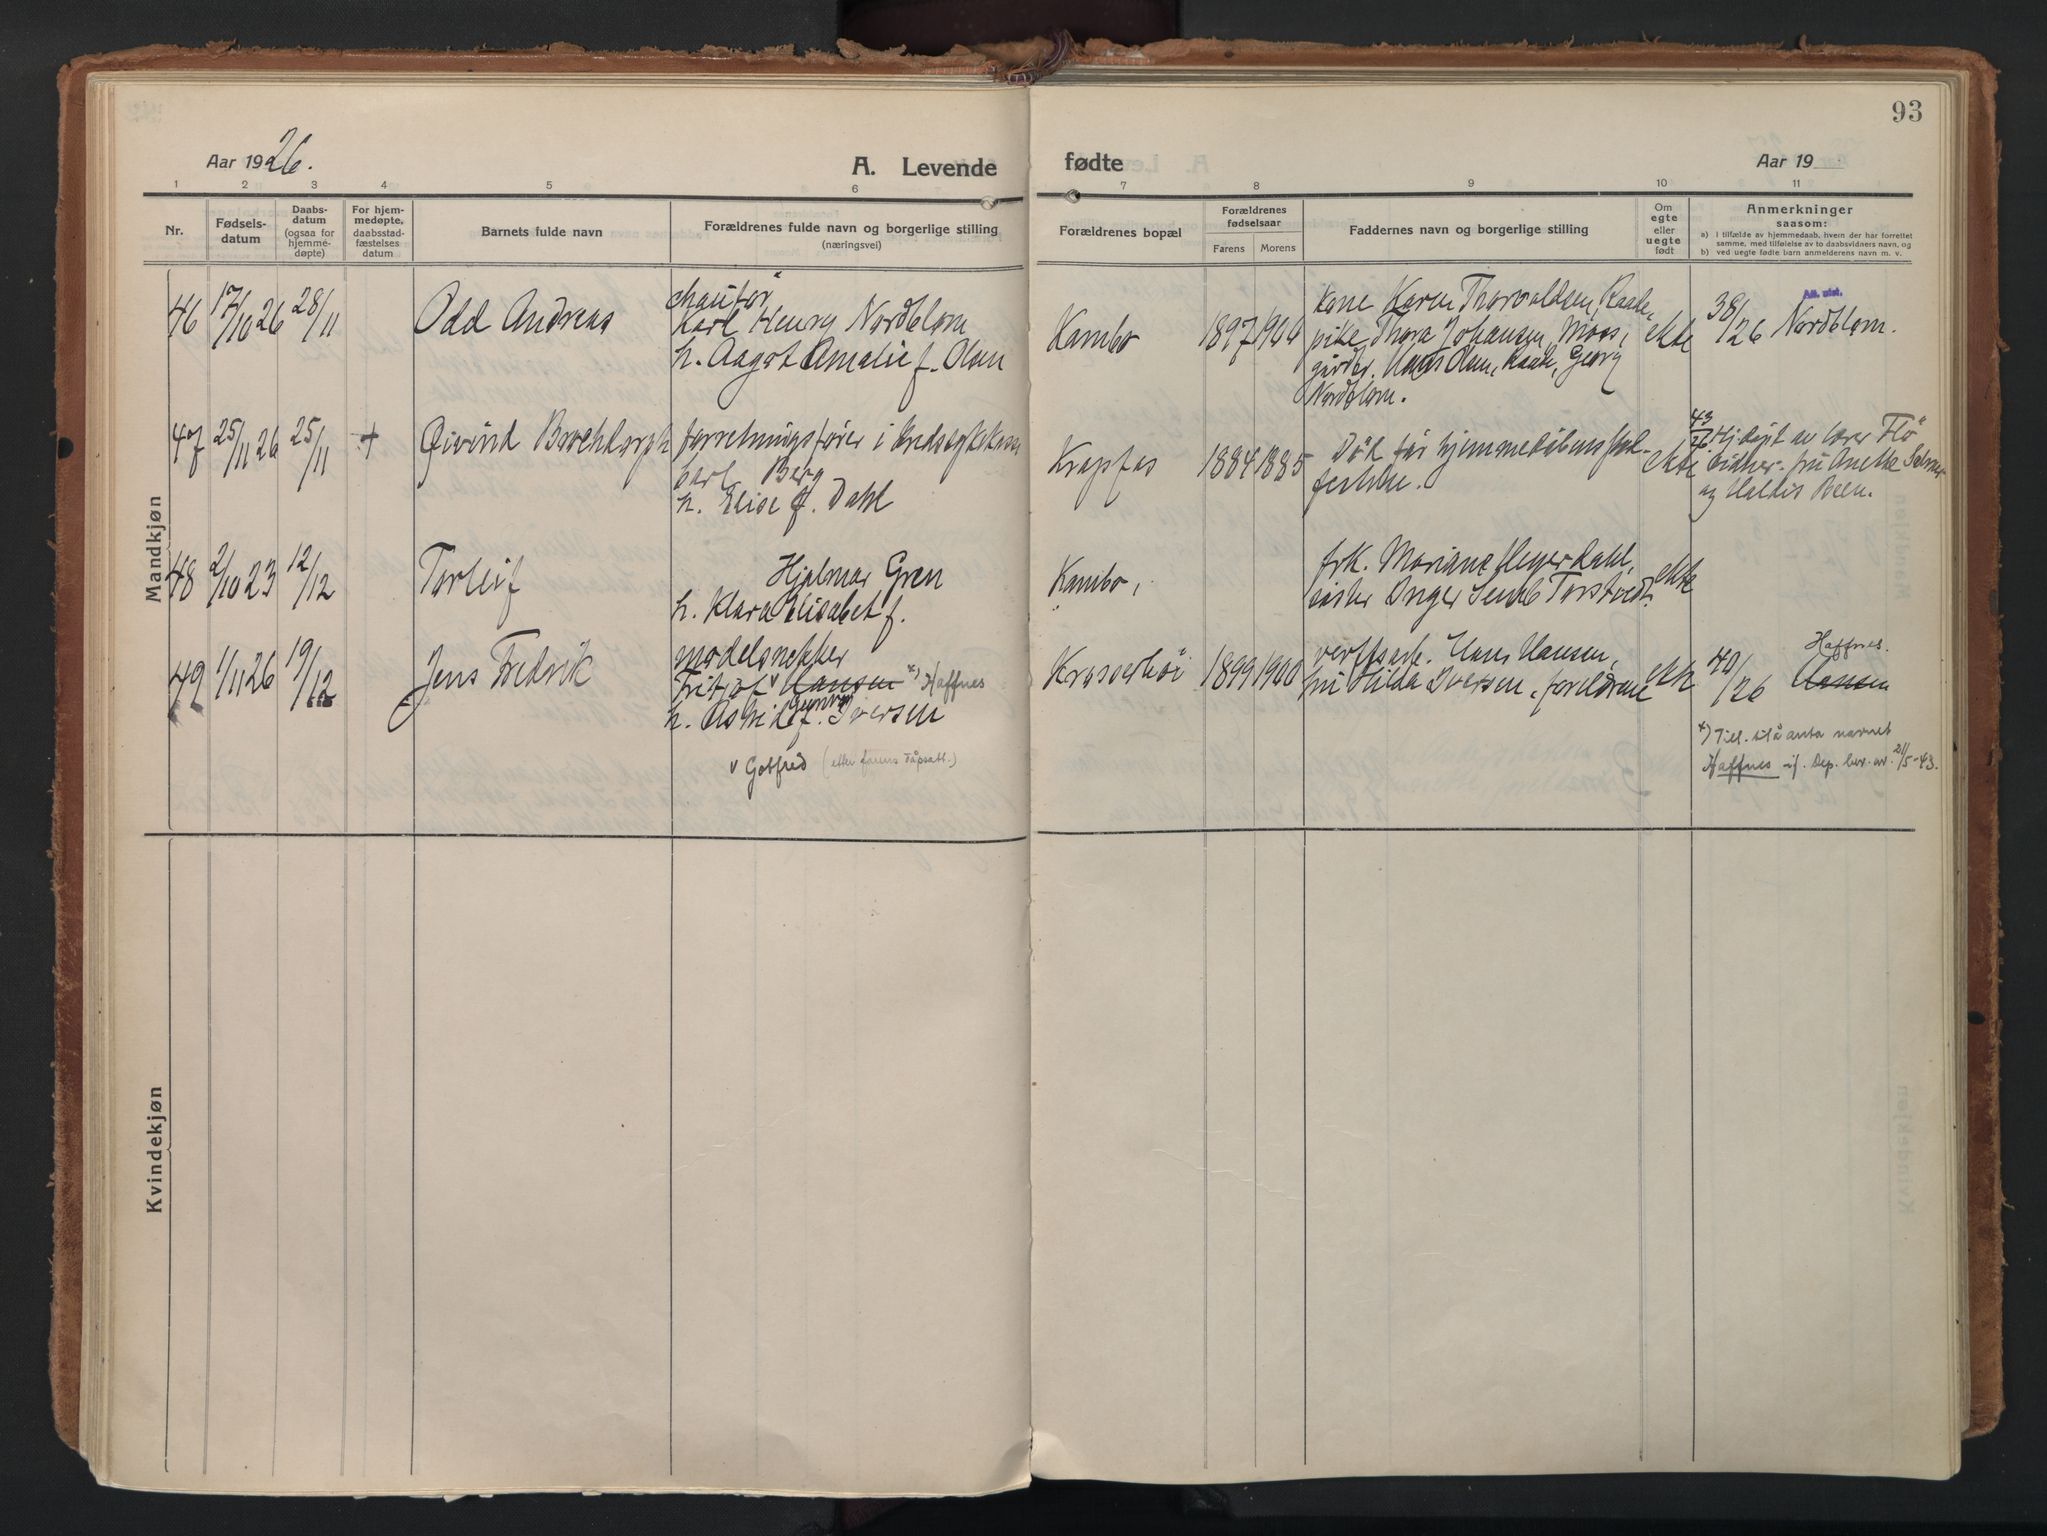 93
Aar 1926.
A. Levende
fødte
Aar 19
1 2 3 4 5 6 7 8 9 10 11
Nr.
Fødsels-
datum
Daabs-
datum
(ogsaa for
hjemme-
døpte)
For hjem-
medøpte,
daabsstad-
fæstelses
datum
Barnets fulde navn
Forældrenes fulde navn og borgerlige stilling
(næringsvei)
Forældrenes bopæl
Forældrenes
fødselsaar
Farens Morens
Faddernes navn og borgerlige stilling
Om
egte
eller
uegte
født
Anmerkninger
saasom:
a) i tilfælde av hjemmedaab, hvem der har forrettet
samme, med tilføielse av to daabsvidners navn, og
b) ved uegte fødte barn anmelderens navn m. v.
Mandkjøn
46 17/10 26 28/11 Odd Andreas
chauför
Karl Henry Nordblom
h. Aagot Amalie f. Olsen
Kambo 1897 1904
kone Karen Thorvaldsen, Raade,
pike Thora Johansen, Moss,
gårdbr. Hans Olsen, Raade, Georg
Nordblom.
ekte
38/26 Nordblom.
Att. utst.
47 25/11 26 25/11 + Øivind
forretningsfører i kredssykekassen
Carl Berg
h. Elise f. Dahl
Krapfos 1884 1885
Död før hjemmedåbens stad-
festelse.
ekte
43/26 Hj.døpt av lærer Flö
vidner: fru Anette
og Haldis Been.
48 2/10 23 12/12 Torleif
Hjalmar Gren
h. Klara Elisabet f.
Kambo,
frk. Mariane Heyerdahl,
søster Inger Semb Torstvedt.
ekte
49 1/11 26 19/12 Jens Fredrik
modelsnekker
Fritjof v Hansen x) Haffnes
h. Astrid Gunvor f. Iversen
v Gotfred (etter farens dåpsatt.)
1899 1900
verftsarb. Hans Hansen,
fru Hilda Iversen, foreldrene
ekte
40/26 Hansen
Haffnes.
x) Till. til å anta navnet
Haffnes if. Dep. bev. av 21/5-43.
Kvindekjøn